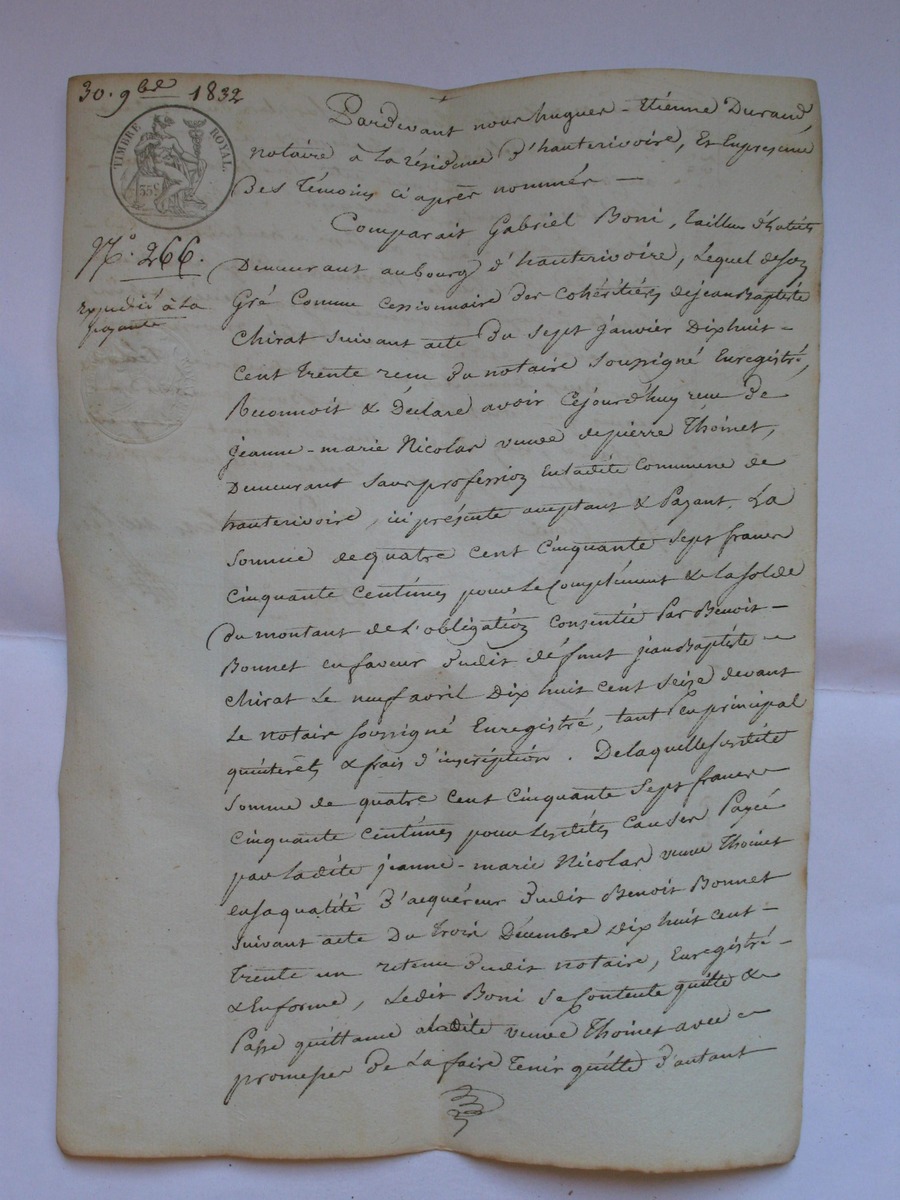 30. 9bre 1832
TIMBRE ROYAL
35c
N.° 266.
Expédié à la
payante
Pardevant nous hugues-Etienne Durand,
notaire à la résidence d'hauterivoire, Et Enpresence
Des Témoins ci après nommés —
Comparait Gabriel Boni, tailleur d'habits
Demeurant aubourg d'hauterivoire, Lequel deson
Gré Comme cessionnaire des Cohéritiers dejeanBaptiste
Chirat suivant acte du sept janvier Dixhuit-
Cent trente recu du notaire soussigné Enregistré,
Reconnoit & Déclare avoir Cejourd'huy recu de
jeanne-marie Nicolas veuve depierre Thoinet,
Demeurant sans profession Enladite Commune de
hauterivoire, ici présente aceptant & Payant. La
somme dequatre cent cinquante sept francs
cinquante centimes pour le complément & la solde
Du montant de L'obligation consentie Par Benoit-
Bonnet enfaveur dudit défunt jeanBaptiste -
Chirat Le neuf avril Dix huit cent seize devant
Le notaire soussigné Enregistré, tant en principal
qu'interêts & frais d'inscription. Delaquelle susdite
somme de quatre cent cinquante sept francs -
cinquante centimes pour lesdites causes Payée
par ladite jeanne-marie Nicolas veuve Thoinet
ensaqualité d'acquéreur dudit Benoit Bonnet
suivant acte du trois Décembre dix huit cent-
trente un retenu dudit notaire, Enregistré-
& Enforme, Ledit Boni se Contente quitte &
Passe quittance à ladite veuve Thoinet avec -
promesse de La faire tenir quitte d'autant